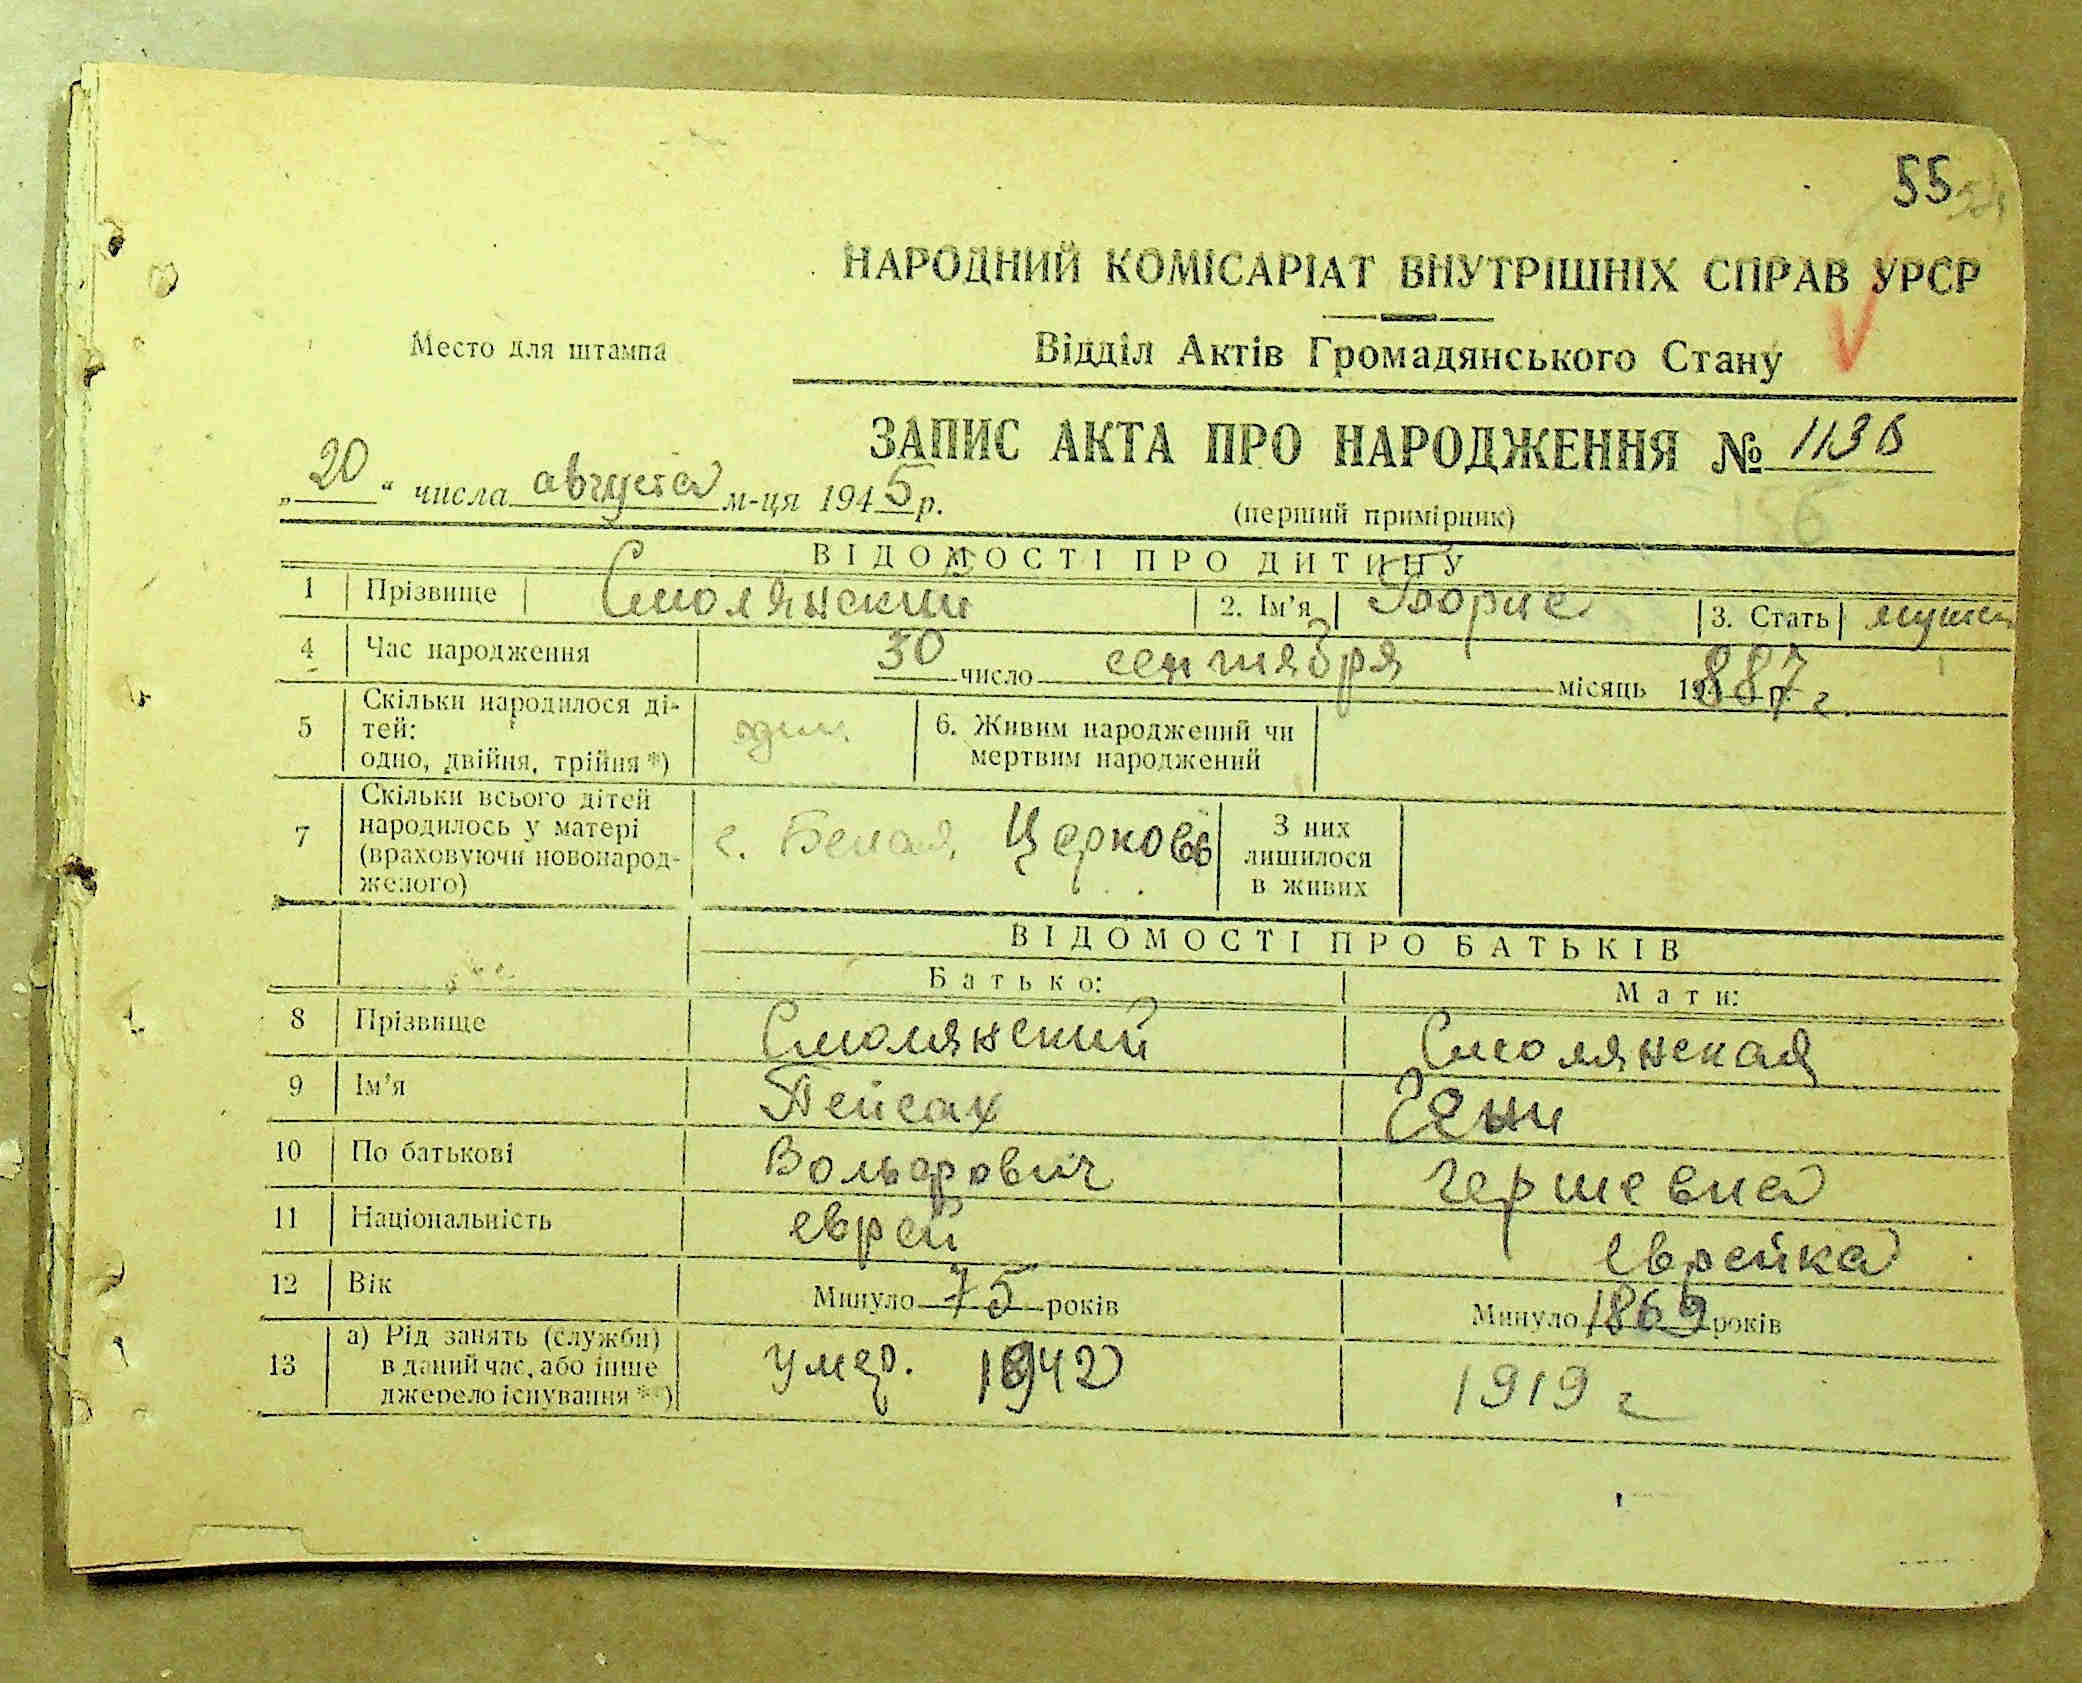 55
НАРОДНИЙ КОМІСАРІАТ ВНУТРІШНІХ СПРАВ УРСР
Место для штампа
Відділ Актів Громадянського Стану
ЗАПИС АКТА ПРО НАРОДЖЕННЯ № 113в
„20“ числа августа м-ця 1945 р.
(перший примірник)
ВІДОМОСТІ ПРО ДИТИНУ
1 Прізвище Смолянский 2. Ім'я Борис 3. Стать мужск
4 Час народження 30 число сентября місяць 1887 г.
5 Скільки народилося ді-
тей:
одно, двійня, трійня *) один 6. Живим народжений чи
мертвим народжений
7 Скільки всього дітей
народилось у матері
(враховуючи новонарод-
женого) с. Белая Церковь З них
лишилося
в живих
ВІДОМОСТІ ПРО БАТЬКІВ
Батько: Мати:
8 Прізвище Смолянский Смолянская
9 Ім'я Пейсах Гени
10 По батькові Вольфович Гершевна
11 Національність еврей еврейка
12 Вік Минуло 75 років Минуло 1869 років
13 а) Рід занять (служби)
в даний час, або інше
джерело існування **) умер. 1942 1919 г